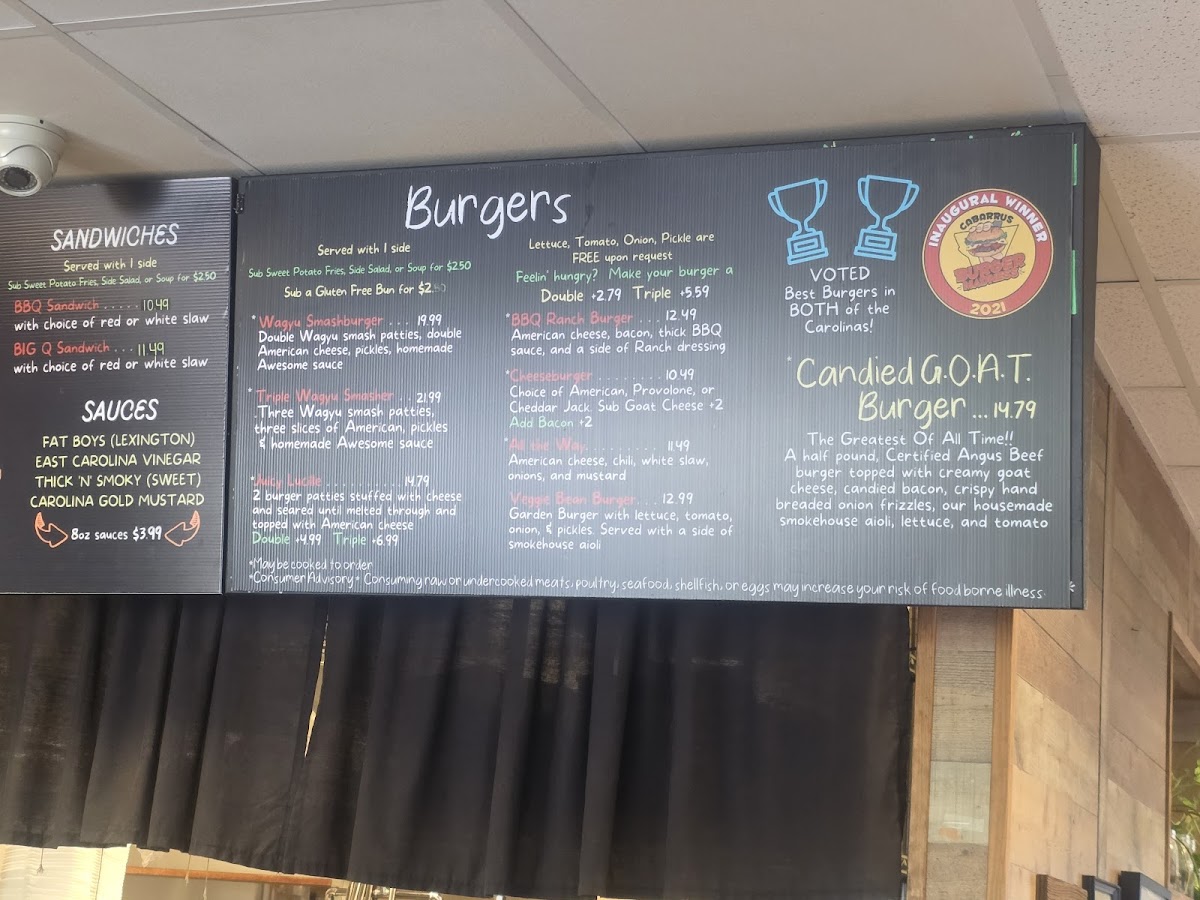 SANDWICHES
Served with 1 side
Sub Sweet Potato Fries, Side Salad, or Soup for $2.50
BBQ Sandwich ..... 10.49
with choice of red or white slaw
BIG Q Sandwich ... 11.49
with choice of red or white slaw
SAUCES
FAT BOYS (LEXINGTON)
EAST CAROLINA VINEGAR
THICK 'N' SMOKY (SWEET)
CAROLINA GOLD MUSTARD
8oz sauces $3.99
Burgers
Served with 1 side
Sub Sweet Potato Fries, Side Salad, or Soup for $2.50
Sub a Gluten Free Bun for $2.50
*Wagyu Smashburger ... 19.99
Double Wagyu smash patties, double
American cheese, pickles, homemade
Awesome sauce
*Triple Wagyu Smasher .. 21.99
Three Wagyu smash patties,
three slices of American, pickles
& homemade Awesome sauce
*Juicy Lucille ......... 14.79
2 burger patties stuffed with cheese
and seared until melted through and
topped with American cheese
Double +4.99 Triple +6.99
Lettuce, Tomato, Onion, Pickle are
FREE upon request
Feelin' hungry? Make your burger a
Double +2.79 Triple +5.59
*BBQ Ranch Burger ... 12.49
American cheese, bacon, thick BBQ
sauce, and a side of Ranch dressing
*Cheeseburger ........ 10.49
Choice of American, Provolone, or
Cheddar Jack. Sub Goat Cheese +2
Add Bacon +2
*All the Way......... 11.49
American cheese, chili, white slaw,
onions, and mustard
Veggie Bean Burger.... 12.99
Garden Burger with lettuce, tomato,
onion, & pickles. Served with a side of
smokehouse aioli
VOTED
Best Burgers in
BOTH of the
Carolinas!
INAUGURAL WINNER
CABARRUS
BURGER
2021
*Candied G.O.A.T.
Burger ... 14.79
The Greatest Of All Time!!
A half pound, Certified Angus Beef
burger topped with creamy goat
cheese, candied bacon, crispy hand
breaded onion frizzles, our housemade
smokehouse aioli, lettuce, and tomato
*May be cooked to order
*Consumer Advisory* Consuming raw or undercooked meats, poultry, seafood, shellfish, or eggs may increase your risk of food borne illness.